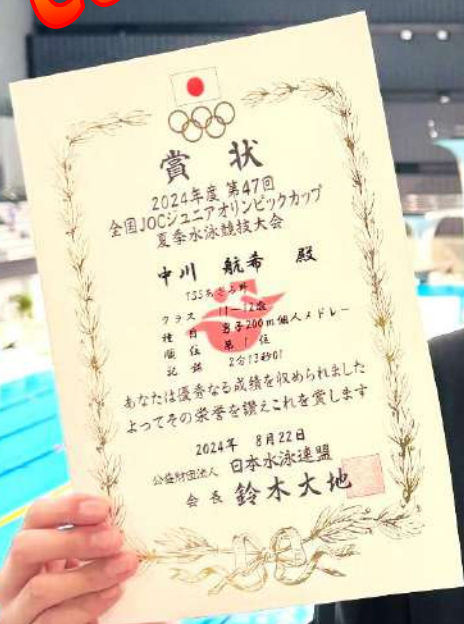 賞状
2024年度 第47回
全国JOCジュニアオリンピックカップ
夏季水泳競技大会
中川 航希 殿
クラス 11~12歳
種目 男子200m個人メドレー
順位 第1位
記録 2分13秒01
あなたは優秀なる成績を収められました
よってその栄誉を讃えこれを賞します
2024年 8月22日
公益財団法人 日本水泳連盟
会長 鈴木大地